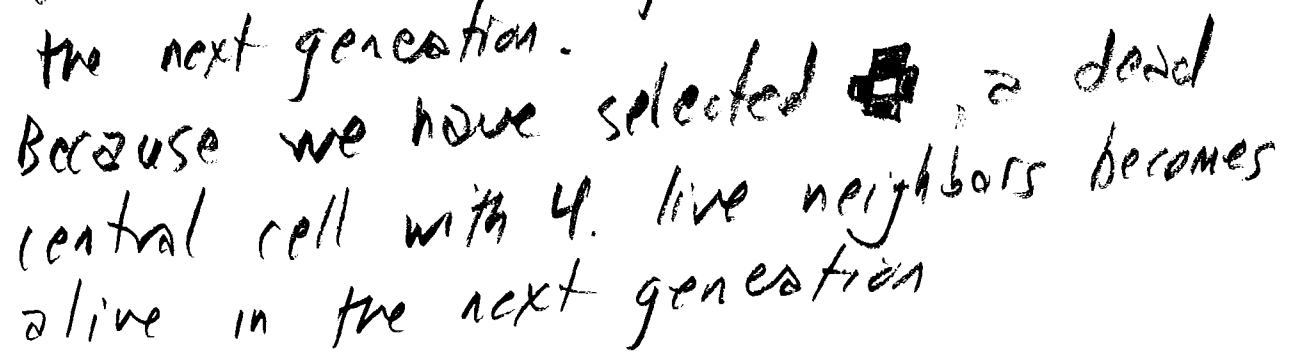 the next geneation.
Because we have selected , a dead
central cell with 4. live neighbors becomes
alive in the next geneation